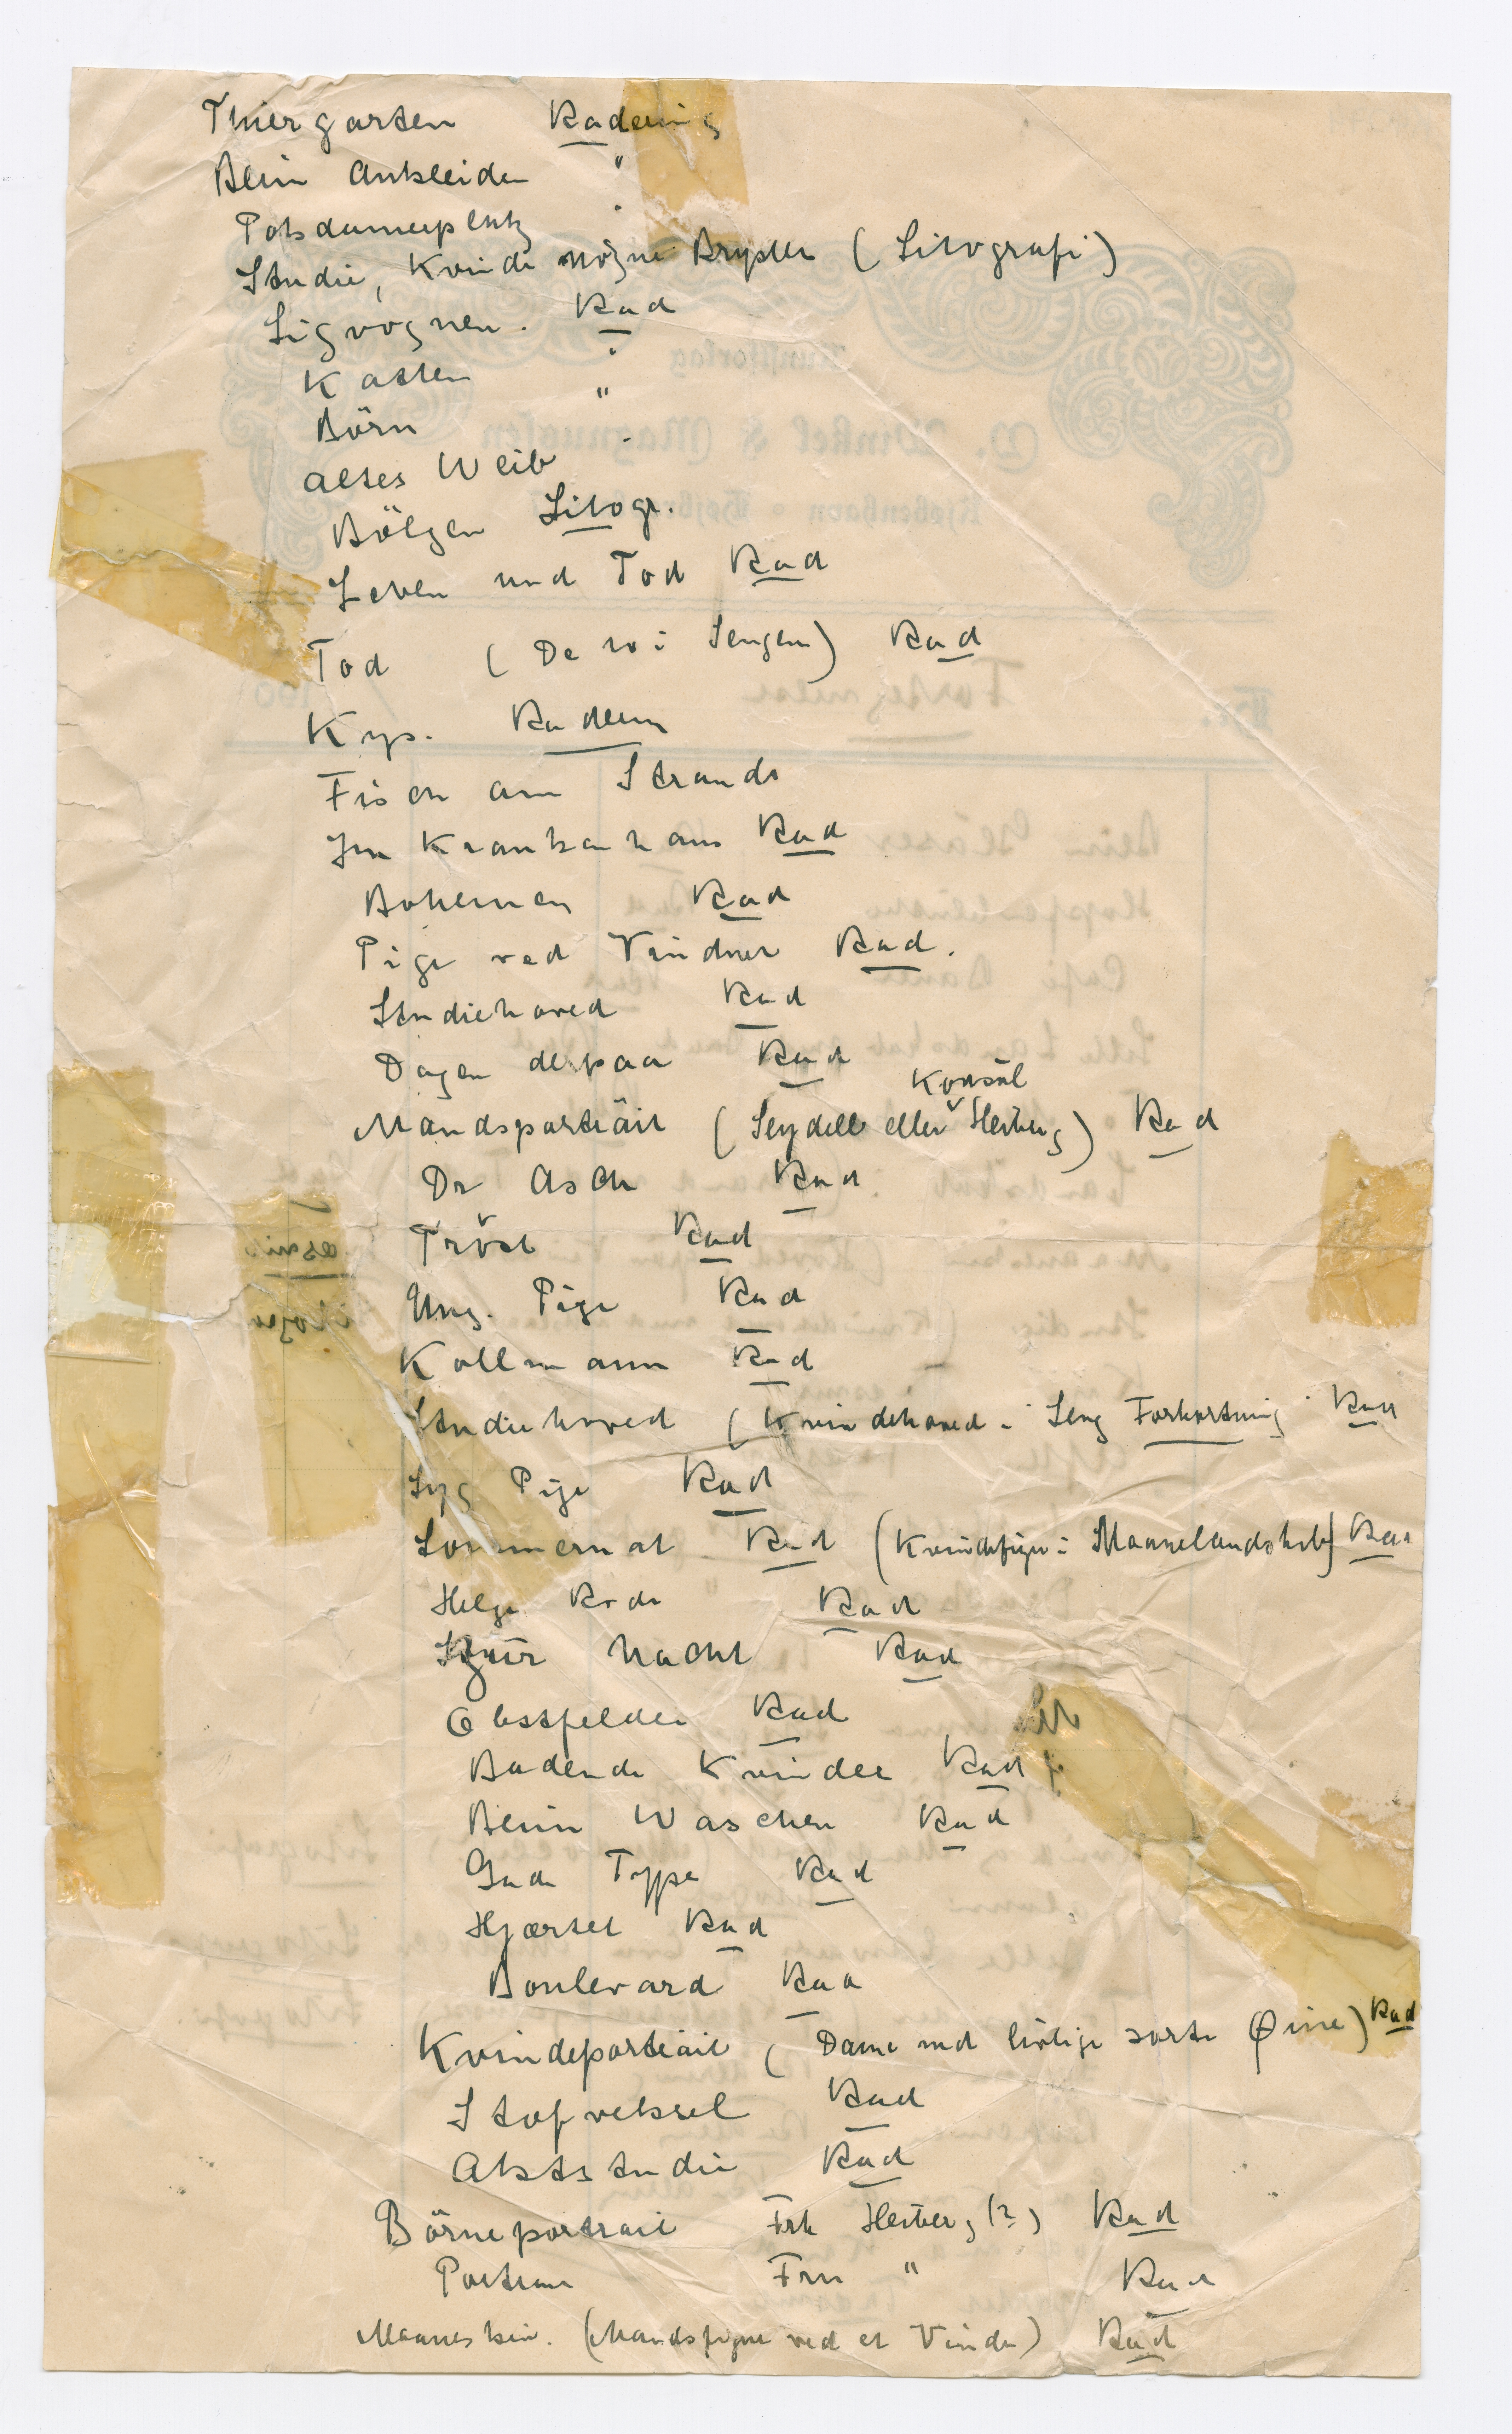 Thiergarten Radering
Beim Ankleiden "
Potsdamerplatz "
Studie, Kvinde nögne Bryster (Litografi)
Ligvognen. Rad
Katten "
Börn "
altes Weib "
Bölgen Litogr.
Leben und Tod Rad
Tod (De to i Sengen) Rad
Kys. Radering
Fisch am Strande
Im Krankenhaus Rad
Bohemen Rad
Pige ved Vinduet Rad.
Studiehoved Rad
Dagen derpaa Rad
Konsul
Mandsportrait (Seydell eller Heiberg) Rad
Dr Asch Rad
Tröst Rad
Ung. Pige Rad
Kollmann Rad
Studiehoved (Kvindehoved i Seng Forkortning Rad
Syg Pige Rad
Sommernat Rad (Kvindefigur i Maanelandskab) Rad
Helge Rode Rad
Nacht Rad
Obstfelder Rad
Badende Kvinder Rad
Beim Waschen Rad
Gade Type Rad
Hjærtet Rad
Boulevard Rad
Kvindeportrait (Dame med livlige sorte Øine) Rad
Stofveksel Rad
Aktstudie Rad
Börneportrait Frk Heiberg (?) Rad
Portrait Fru " Rad
Maaneskin. (Mandsfigur ved et Vindu) Rad